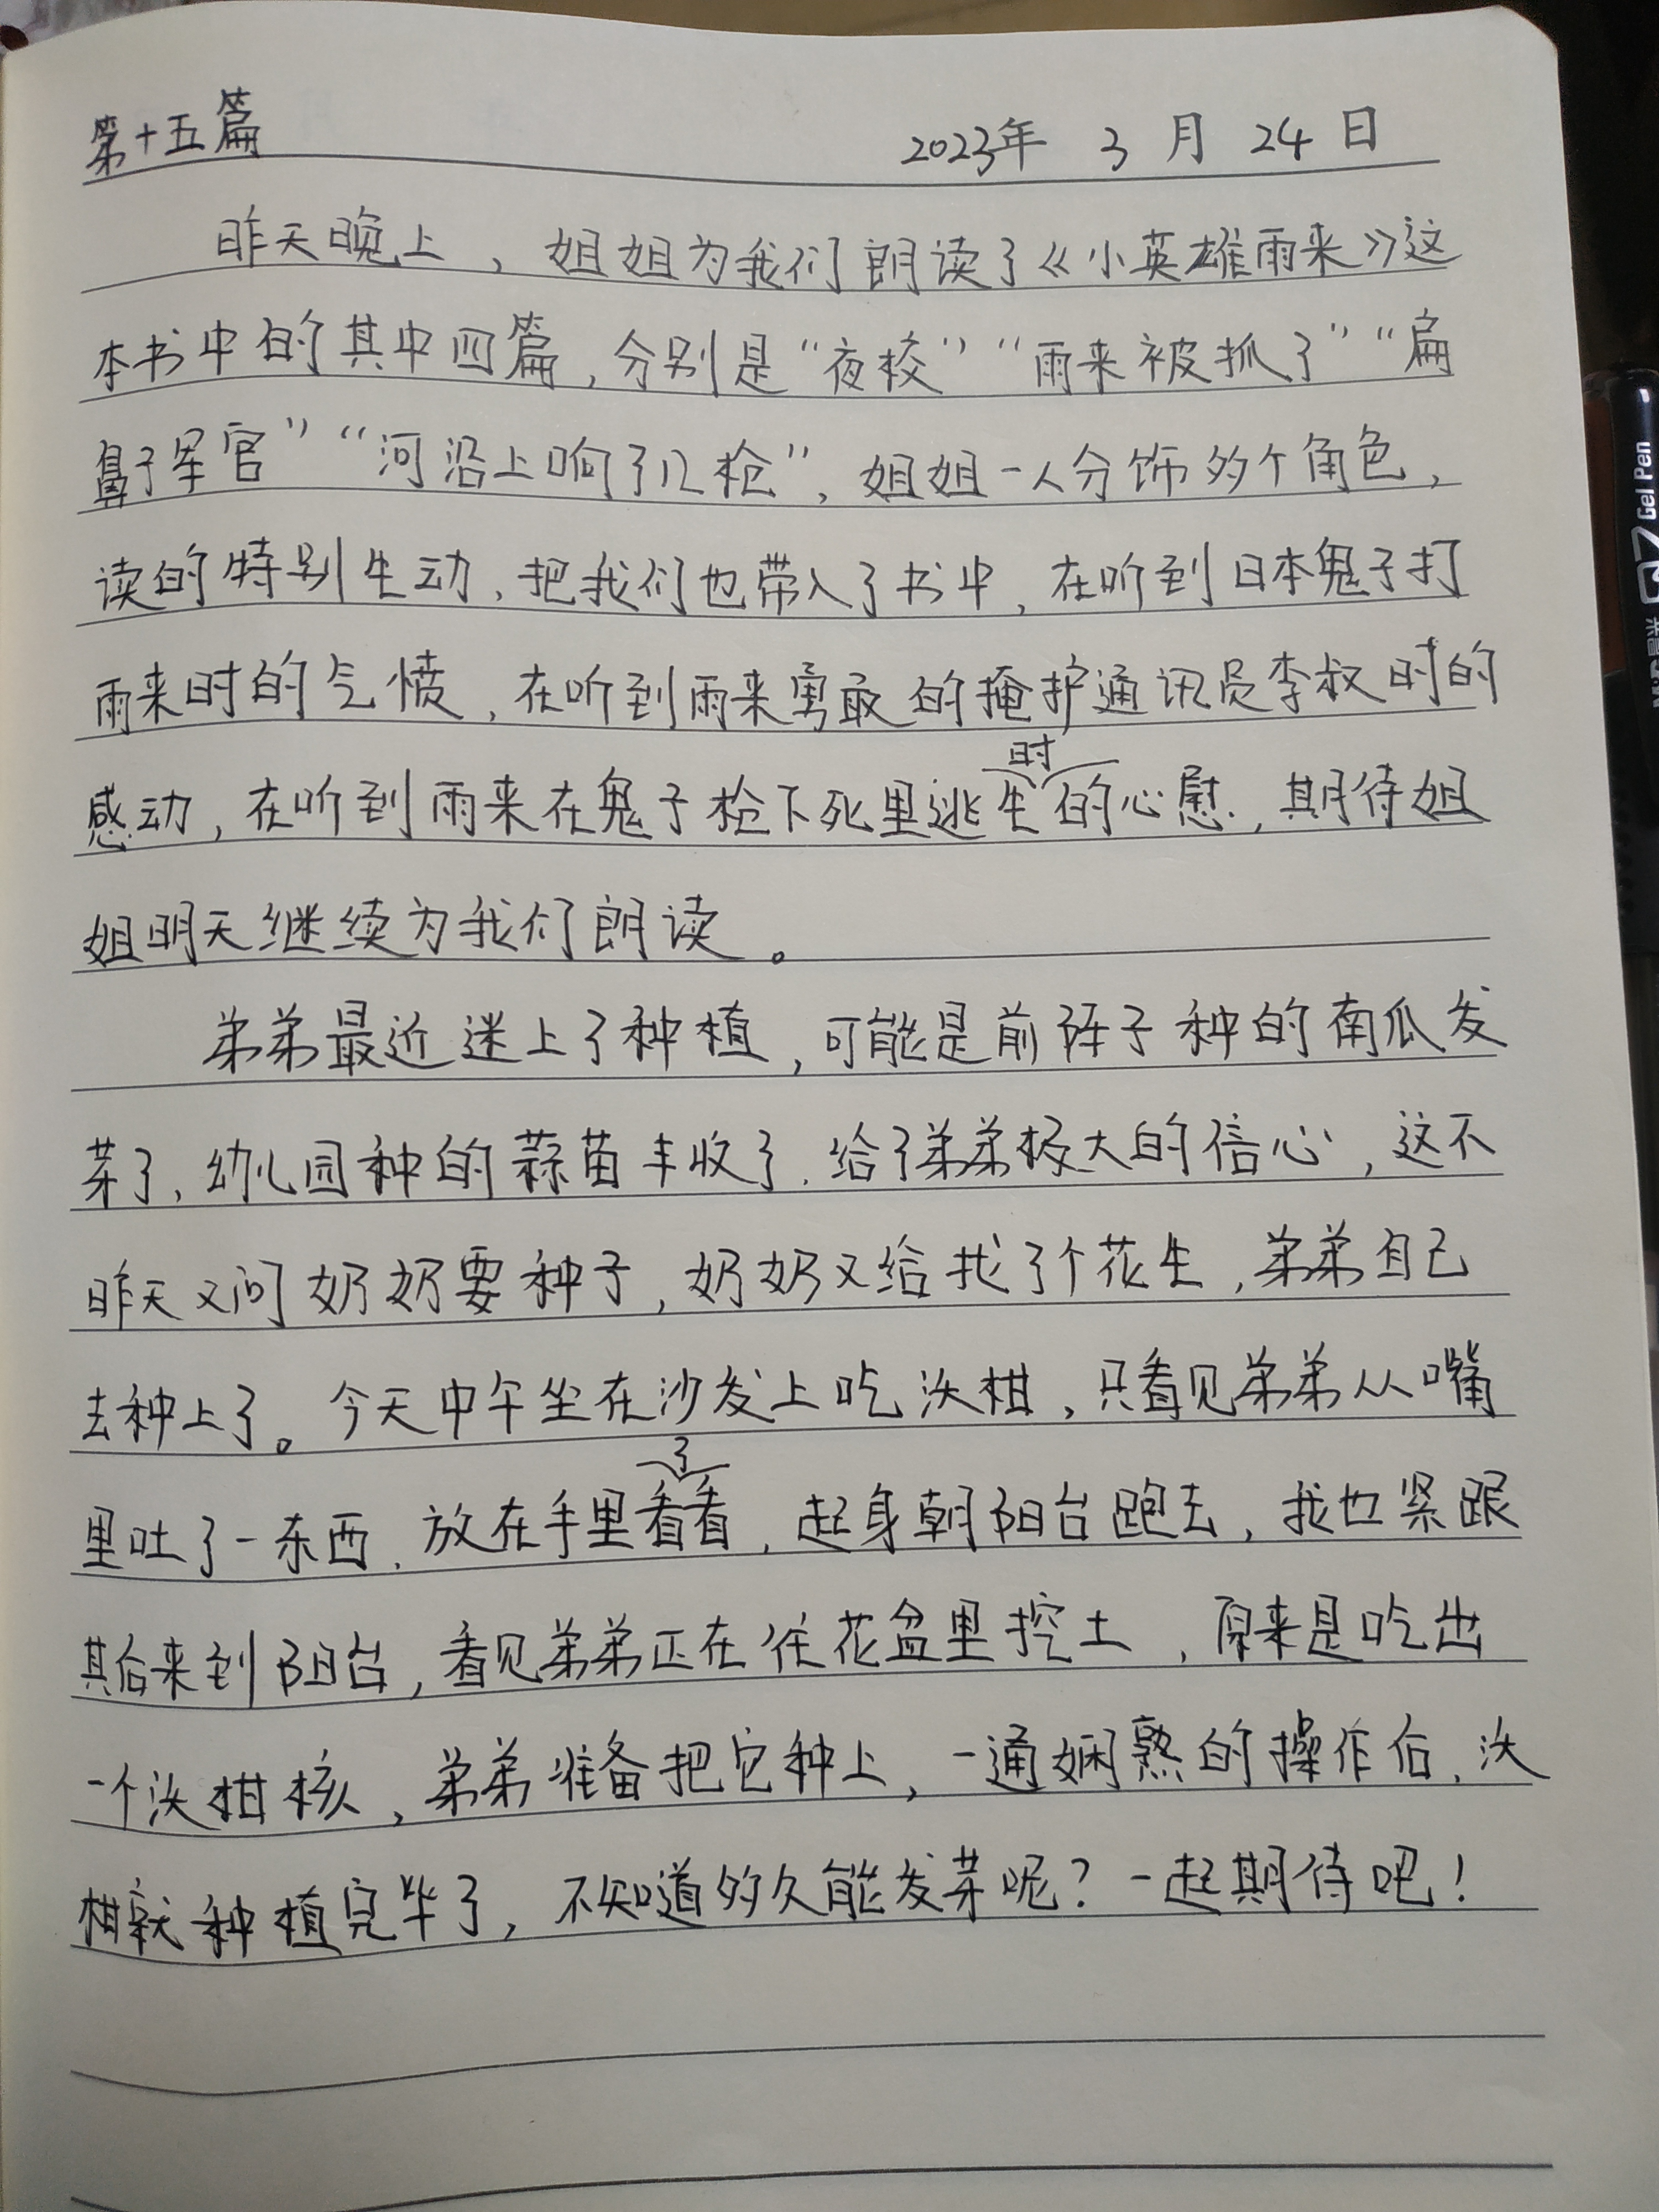 第十五篇 2023年 3 月 24 日
昨天晚上，姐姐为我们朗读了《小英雄雨来》这
本书中的其中四篇，分别是“夜校”“雨来被抓了”“扁
鼻子军官”“河沿上响了几枪”，姐姐一人分饰多个角色，
读的特别生动，把我们也带入了书中，在听到日本鬼子打
雨来时的气愤，在听到雨来勇敢的掩护通讯员李叔时的
感动，在听到雨来在鬼子枪下死里逃生时的心慰，期待姐
姐明天继续为我们朗读。
弟弟最近迷上了种植，可能是前阵子种的南瓜发
芽了，幼儿园种的蒜苗丰收了，给了弟弟极大的信心，这不
昨天又问奶奶要种子，奶奶又给找了个花生，弟弟自己
去种上了。今天中午坐在沙发上吃沃柑，只看见弟弟从嘴
里吐了一东西，放在手里看了看，起身朝阳台跑去，我也紧跟
其后来到阳台，看见弟弟正在往花盆里挖土，原来是吃出
一个沃柑核，弟弟准备把它种上，一通娴熟的操作后，沃
柑就种植完毕了，不知道多久能发芽呢？一起期待吧！
Gel Pen